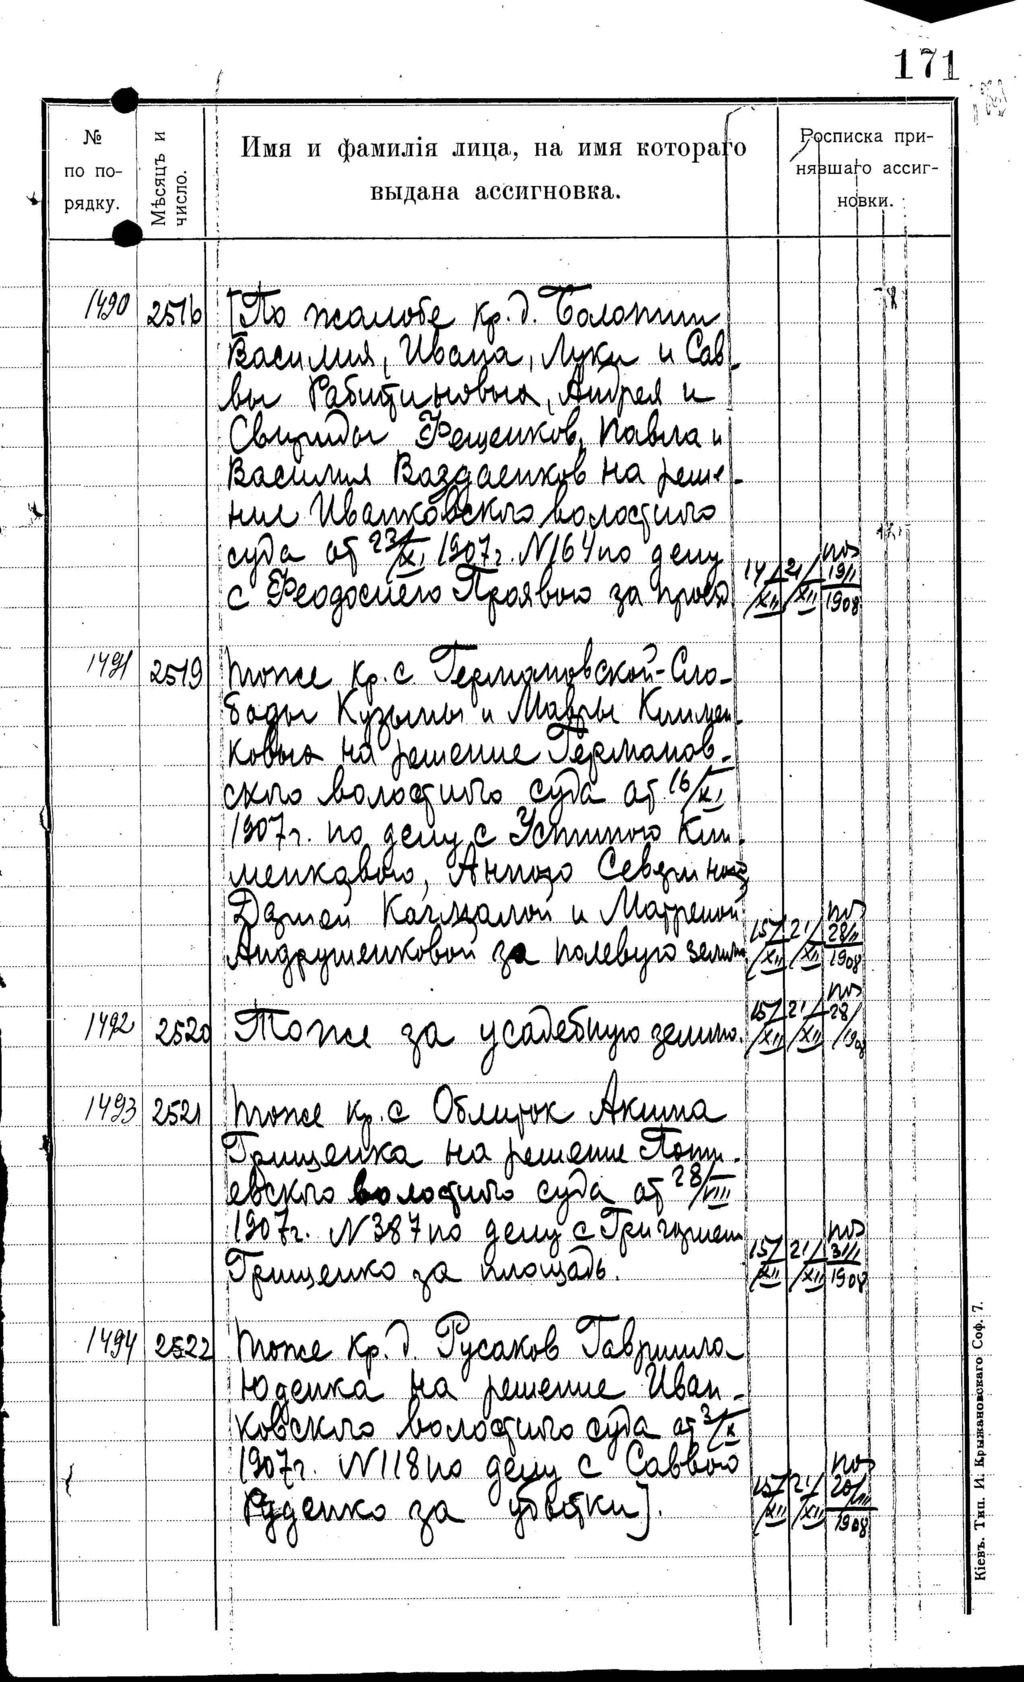 171
№ по порядку.
Мѣсяцъ и число.
Имя и фамилія лица, на имя котораго
выдана ассигновка.
Росписка при-
нявшаго ассиг-
новки.
1490 2516 [По жалобе кр. д. Болотни
Василия, Ивана, Луки и Сав-
вы Андрея и
Свириды Фещенков, Павла и
Василия на реше-
ние Иванковского волостного
суда от 23/XI 1907г. N164 по делу
с Феодосиею Проявою за 14/XII 21/XII 19/II 1908
1491 2519 тоже кр. с Германовской-Сло-
боды Кузьмы и Мавры Климен-
ковых на решение Германов-
ского волостного суда от 16/XI
1907г. по делу с Устиною Кли-
менковою, Анною
и Матреной 15/XII 21/XII 28/II 1908
Андрушенковой за полевую землю
1492 2520 Тоже за усадебную землю. 15/XII 21/XII 28/ /1908
1493 2521 тоже кр. с Облиток Акима
Грищенка на решение
волостного суда от 28/VIII
1907г. N387 по делу с Григорием
Грищенко за площадь. 15/XII 21/XII 31/I 1908
1494 2522 тоже кр. д. Русаков Гавриила
Юденка на решение Иван-
ковского волостного суда от 3/X
1907г. N118 по делу с Саввою
Руденко за убытки]. 15/XII 21/XII 20/III 1908
Кіевъ. Тип. И. Крыжановскаго Соф. 7.